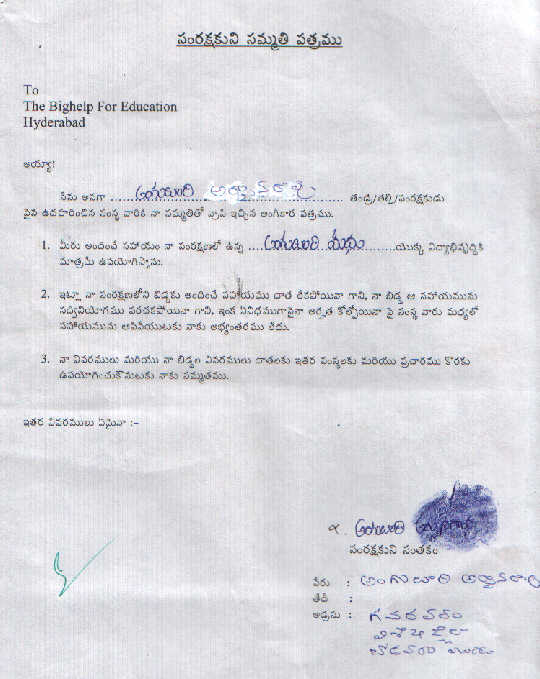 సంరక్షకుని సమ్మతి పత్రము
To
The Bighelp For Education
Hyderabad
అయ్యా!
నేను అనగా ........ తండ్రి/తల్లి/సంరక్షకుడు
పైన ఉదహరించిన సంస్థ వారికి నా సమ్మతితో వ్రాసి ఇచ్చిన అంగీకార పత్రము.
1. మీరు అందించే సహాయం నా సంరక్షణలో ఉన్న ........ యొక్క విద్యాభివృద్ధికి
మాత్రమే ఉపయోగిస్తాను.
2. ఇట్లా నా సంరక్షణలోని బిడ్డకు అందించే సహాయము దాత లేకపోయినా గాని, నా బిడ్డ ఆ సహాయమును
సద్వినియోగము పరచకపోయినా గాని, ఇంక ఏవిధముగానైనా అర్హత కోల్పోయినా పై సంస్థ వారు మధ్యలో
సహాయమును ఆపివేయుటకు నాకు అభ్యంతరము లేదు.
3. నా వివరములు మరియు నా బిడ్డల వివరములు దాతలకు ఇతర సంస్థలకు మరియు ప్రచారము కొరకు
ఉపయోగించుకొనుటకు నాకు సమ్మతము.
ఇతర వివరములు ఏమైనా :-
సంరక్షకుని సంతకం
పేరు :
తేదీ :
అడ్రసు : గవరవరం